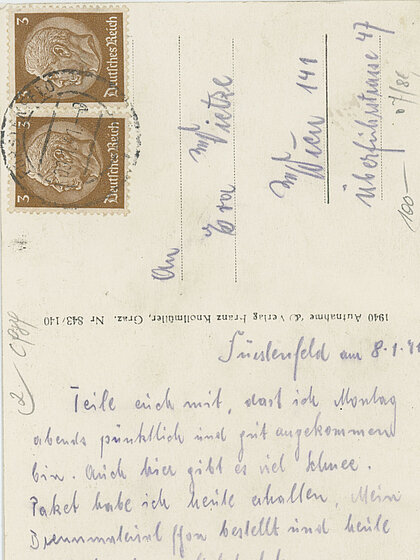 3 Deutsches Reich
3 Deutsches Reich
An
Wien 141
Überfuhrstrasse 47
100—
1940 Aufnahme u. Verlag Franz Knollmüller, Graz. Nr 843/140
Fürstenfeld am 8.1.41
Teile euch mit, dass ich Montag
abends pünktlich und gut angekommen
bin. Auch hier gibt es viel Schnee.
Paket habe ich heute erhalten. Mein
Brennmaterial bestellt und heute